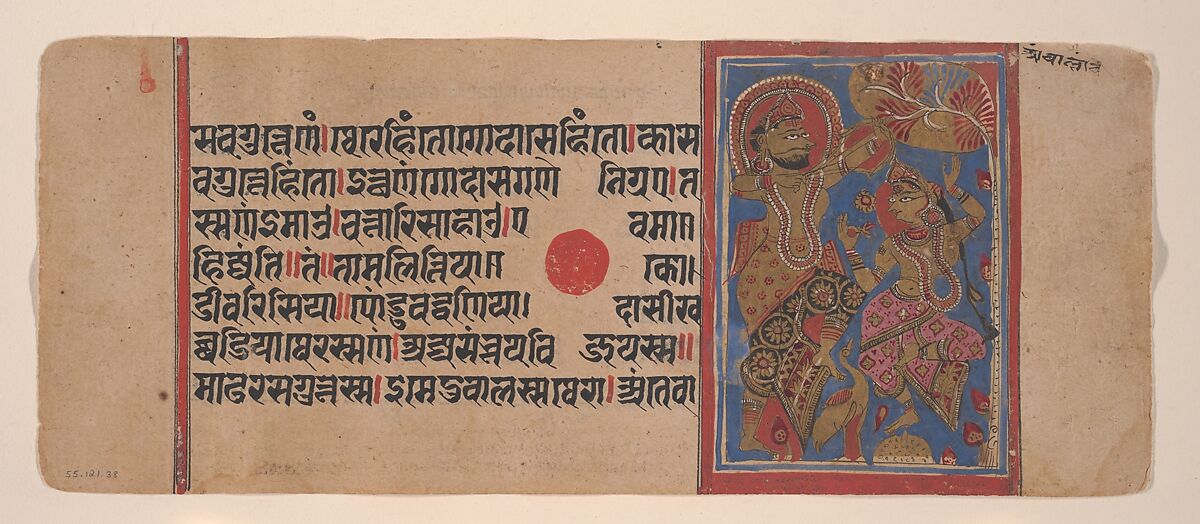 सवगुत्तेणं। थेरेहिंतो गोदासेहिंतो। कास
वगुत्तेहिंतो। इत्थणं गोदासगणे निग्गए। त
स्सणं इमाउ। चत्तारि साहाउ। एवमा
हिज्जंति॥ तं॥ तामलित्तिया॥ को
डीवरिसिया॥ पोंडुवद्धणिया। दासीख
ब्बडिया। थेरस्सणं। अज्जसंभूयविजयस्स॥
माढरसगुत्तस्स। इमे दुवालस थेरा। अंतेवा
55.121.38